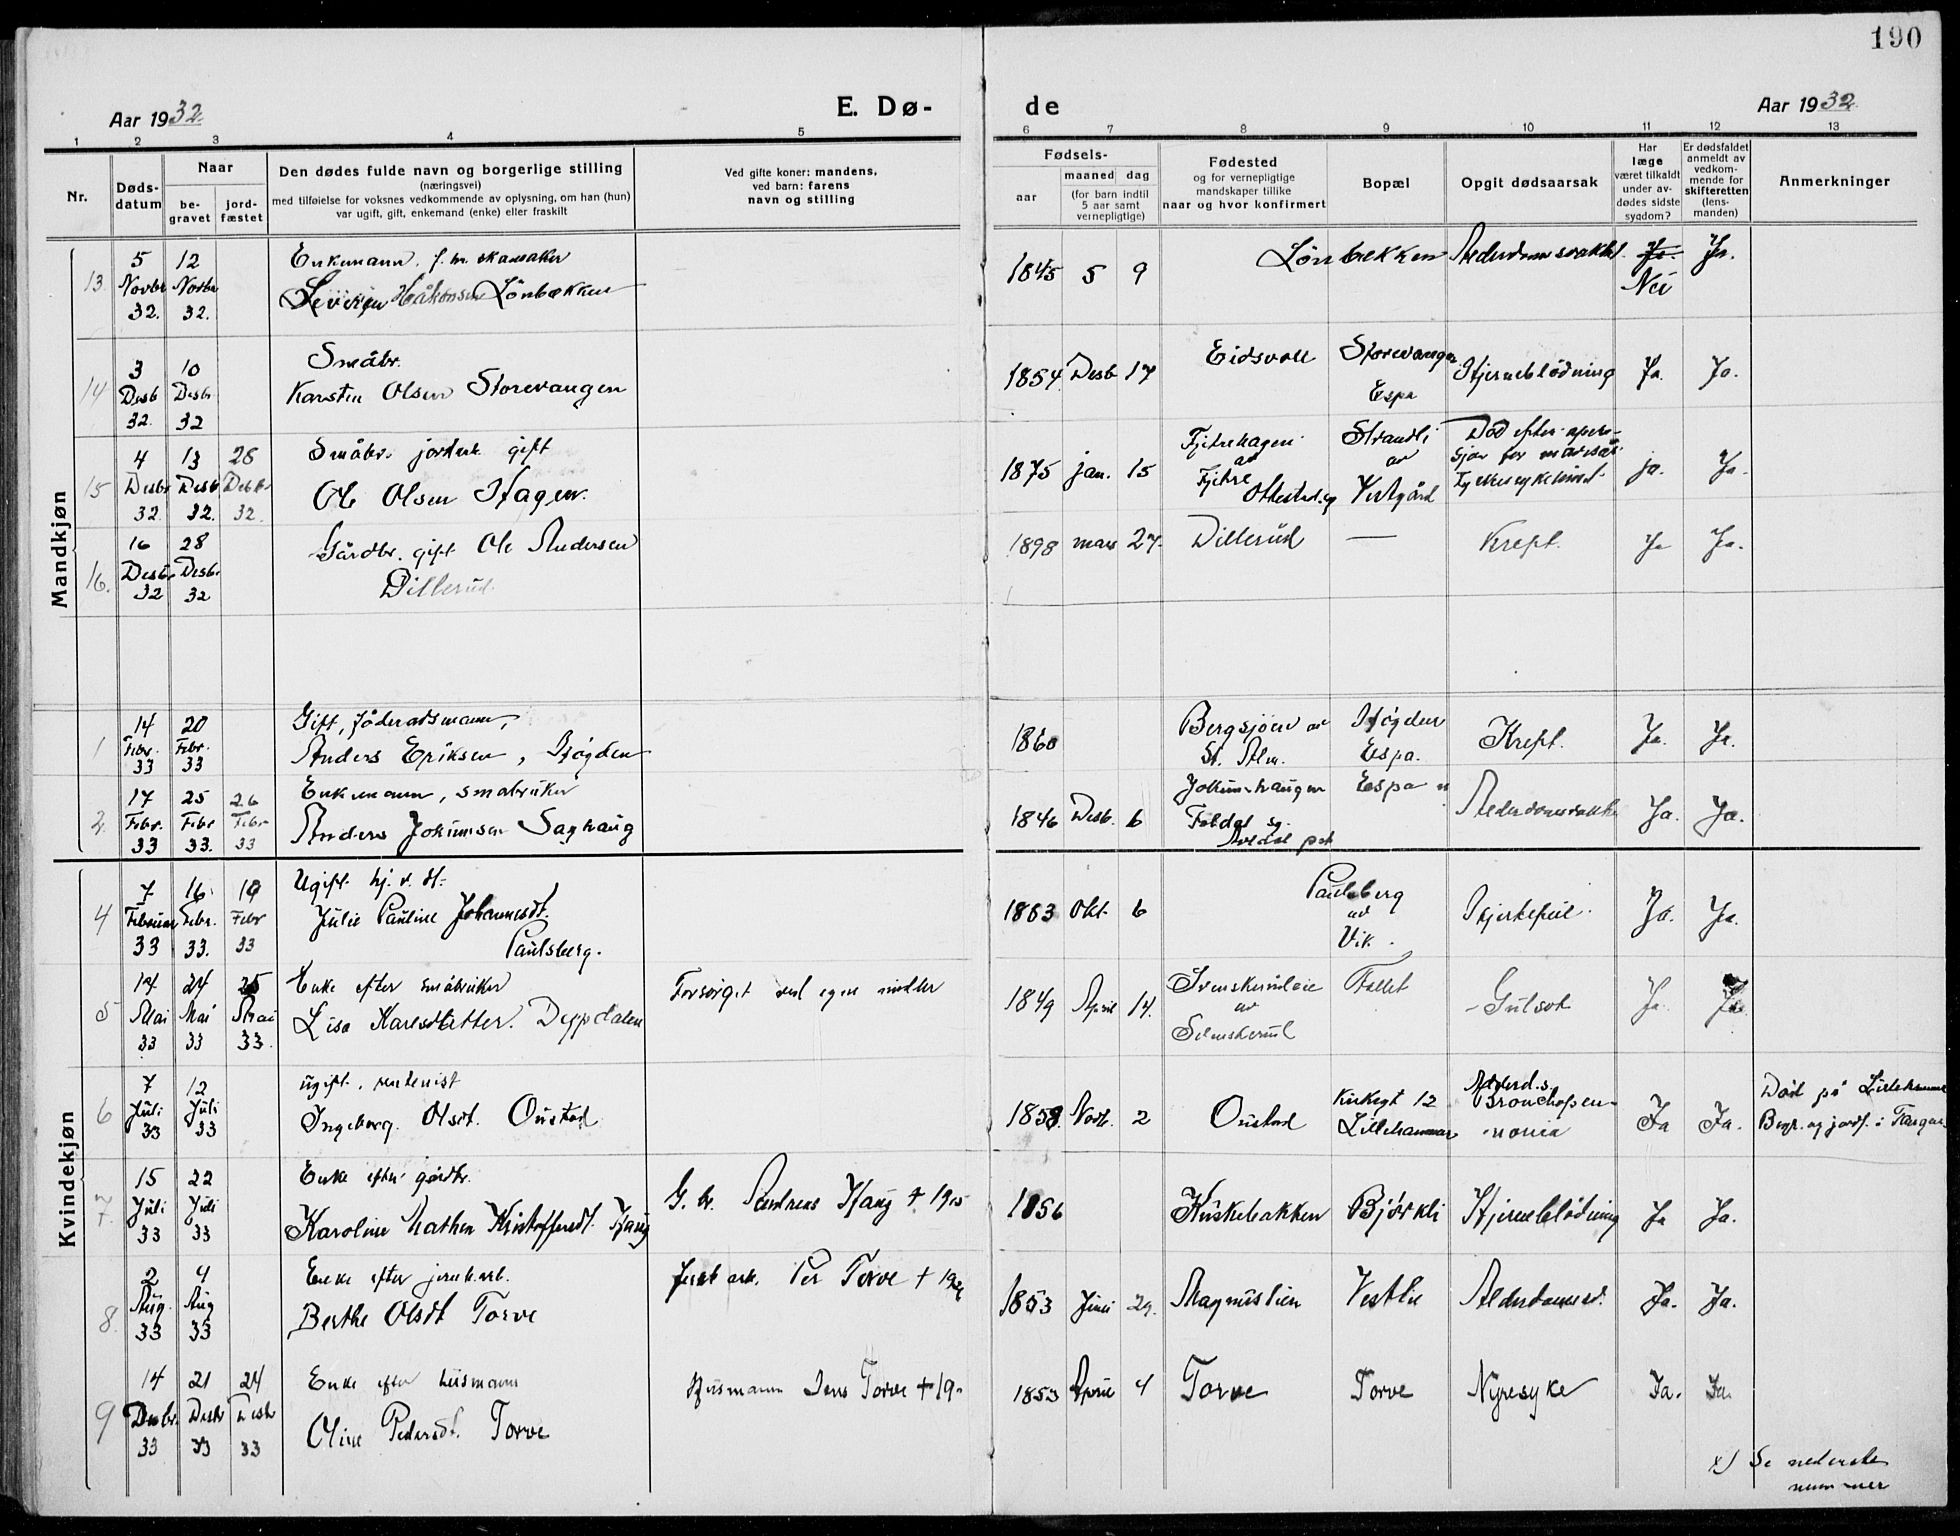 190
Aar 1932.
E. Dø-
de
Aar 1932
1 2 3 4 5 6 7 8 9 10 11 12 13
Nr.
Døds-
datum
Naar
be-
gravet
jord-
fæstet
Den dødes fulde navn og borgerlige stilling
(næringsvei)
med tilføielse for voksnes vedkommende av oplysning, om han (hun)
var ugift, gift, enkemand (enke) eller fraskilt
Ved gifte koner: mandens,
ved barn: farens
navn og stilling
Fødsels-
aar
maaned dag
(for barn indtil
5 aar samt
vernepligtige)
Fødested
og for vernepligtige
mandskaper tillike
naar og hvor konfirmert
Bopæl
Opgit dødsaarsak
Har
læge
været tilkaldt
under av-
dødes sidste
sygdom?
Er dødsfaldet
anmeldt av
vedkom-
mende for
skifteretten
(lens-
manden)
Anmerkninger
Mandkjøn
13.
5
Novbr
32.
12
Novbr
32.
Enkemann, f. hv. skomaker
Severin Håkonsen Lönbækken
1845 5 9
Lönbekken
Ja.
Nei
Ja.
14
3
Desb
32.
10
Desbr
32
Småbr.
Karsten Olsen Storevangen
1854 Desb 17
Eidsvoll
Storevangen
Espa
Hjerneblödning
Ja.
Ja.
15
4
Desbr
32.
13
Desb
32.
28
Desbr
32.
Småbr. jordbr. gift
Ole Olsen Hagen.
1875 jan. 15
Fjetrehagen
av
Fjetre
Ottestad sg
Strandli
av
Vestgård
Död efter opera-
sjon for
ja.
Ja.
16.
16
Desbr.
32
28
Desb.
32
Gårdbr. gift Ole Andersen
Dillerud.
1898 mars 27.
Dillerud
—
Kreft.
Ja
Ja.
1
14
Febr.
33
20
Febr.
33
Gift, föderådsmann,
Anders Eriksen, Högden
1860
Bergsjöen av
St. Alm.
Högden
Espa.
Kreft.
Ja.
Ja.
2.
17
Febr.
33
25
Febr
33.
26
Febr
33
Enkemann, småbruker
Anders Jokumsen Saghaug
1846 Desb. 6
Jokumshaugen
Foldal sg.
Espa
Ja.
Ja.
Kvindekjøn
4
7
Februar
33
16
Febr.
33.
19
Febr
33
Ugift hj. v. dt.
Julie Pauline Johannesdt.
Paulsberg.
1863 Okt. 6
Paulsberg
av
Vik.
Hjertefeil.
Ja.
Ja.
5
14
Mai
33
24
Mai
33
25
Mai
33.
Enke efter småbruker
Lisa Karlsdatter. Deppdalen
Forsörget ved egne midler
1849 April 14.
av
Fallet
Gulsot
Ja.
Ja.
6
7
Juli
33
12
Juli
33
ugift, rentenist
Ingeborg Olsdt. Oustad
1858. Novb. 2
Oustad
Kirkegt 12
Lillehammer
Alderd.s.
Bronchopen-
-monia
Ja
Ja.
Död på Lillehammer
Begr. og jordf. i Tangen
7.
15
Juli
33
22
Juli
33
Enke efter gårdbr.
Karoline Mathea Kristoffersdt. Haug
G. br. Andreas Haug + 1915
1856
Kuskebakken
Björkli
Hjerneblödning
Ja
Ja.
8.
2
Aug.
33
4
Aug
33
Enke efter jernb.arb.
Berthe Olsdt Torve
Jernb arb. Per Torve + 192
1853 Juni 29.
Magnuslien
Vestlie
Alderdomssv.
Ja.
Ja.
9
14
Desbr.
33
21
Desbr
33
24
Desbr
33
Enke efter husmann
Oline Pedersdt. Torve
Husmann Jens Torve + 19-
1853 April 4
Torve
Torve
Nyresyke
Ja.
Ja.
x) Se nederste
nummer